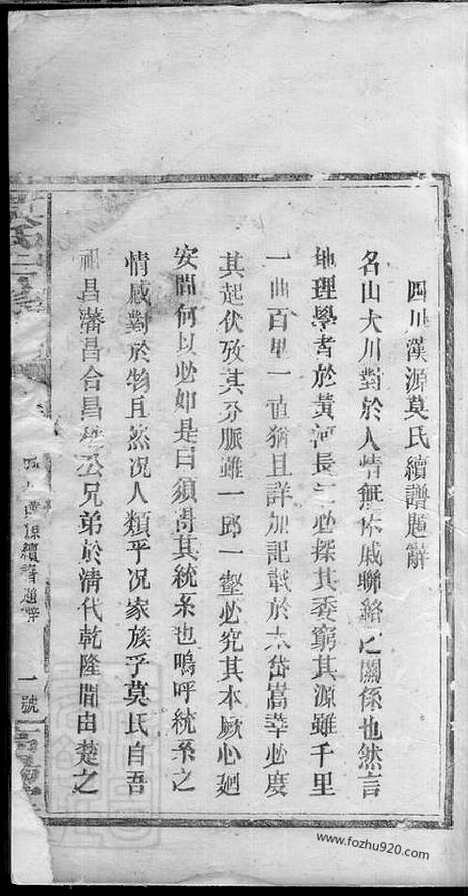 四川漢源莫氏續譜題辭
名山大川對於人情無休戚聯絡之關係也然言
地理學者於黃河長江必探其委窮其源雖千里
一曲百里一直猶且詳加記載於太岱嵩華必度
其起伏攷其分脈雖一邱一壑必究其本厥心廻
安間何以必如是曰須得其統系也嗚呼統系之
情感對於物且然况人類乎况家族乎莫氏自吾
祖昌藩昌合昌 公兄弟於清代乾隆間由楚之
續譜題辭
一號
www.fozhu920.com